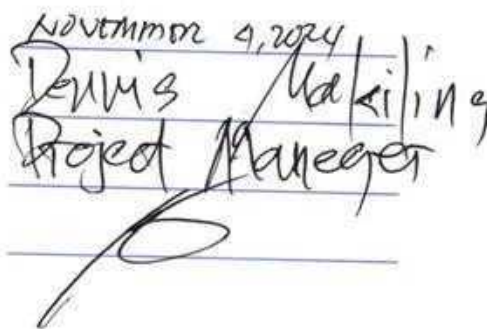 NOVEMBER 4, 2024
Dennis Makiling
Project Maneger